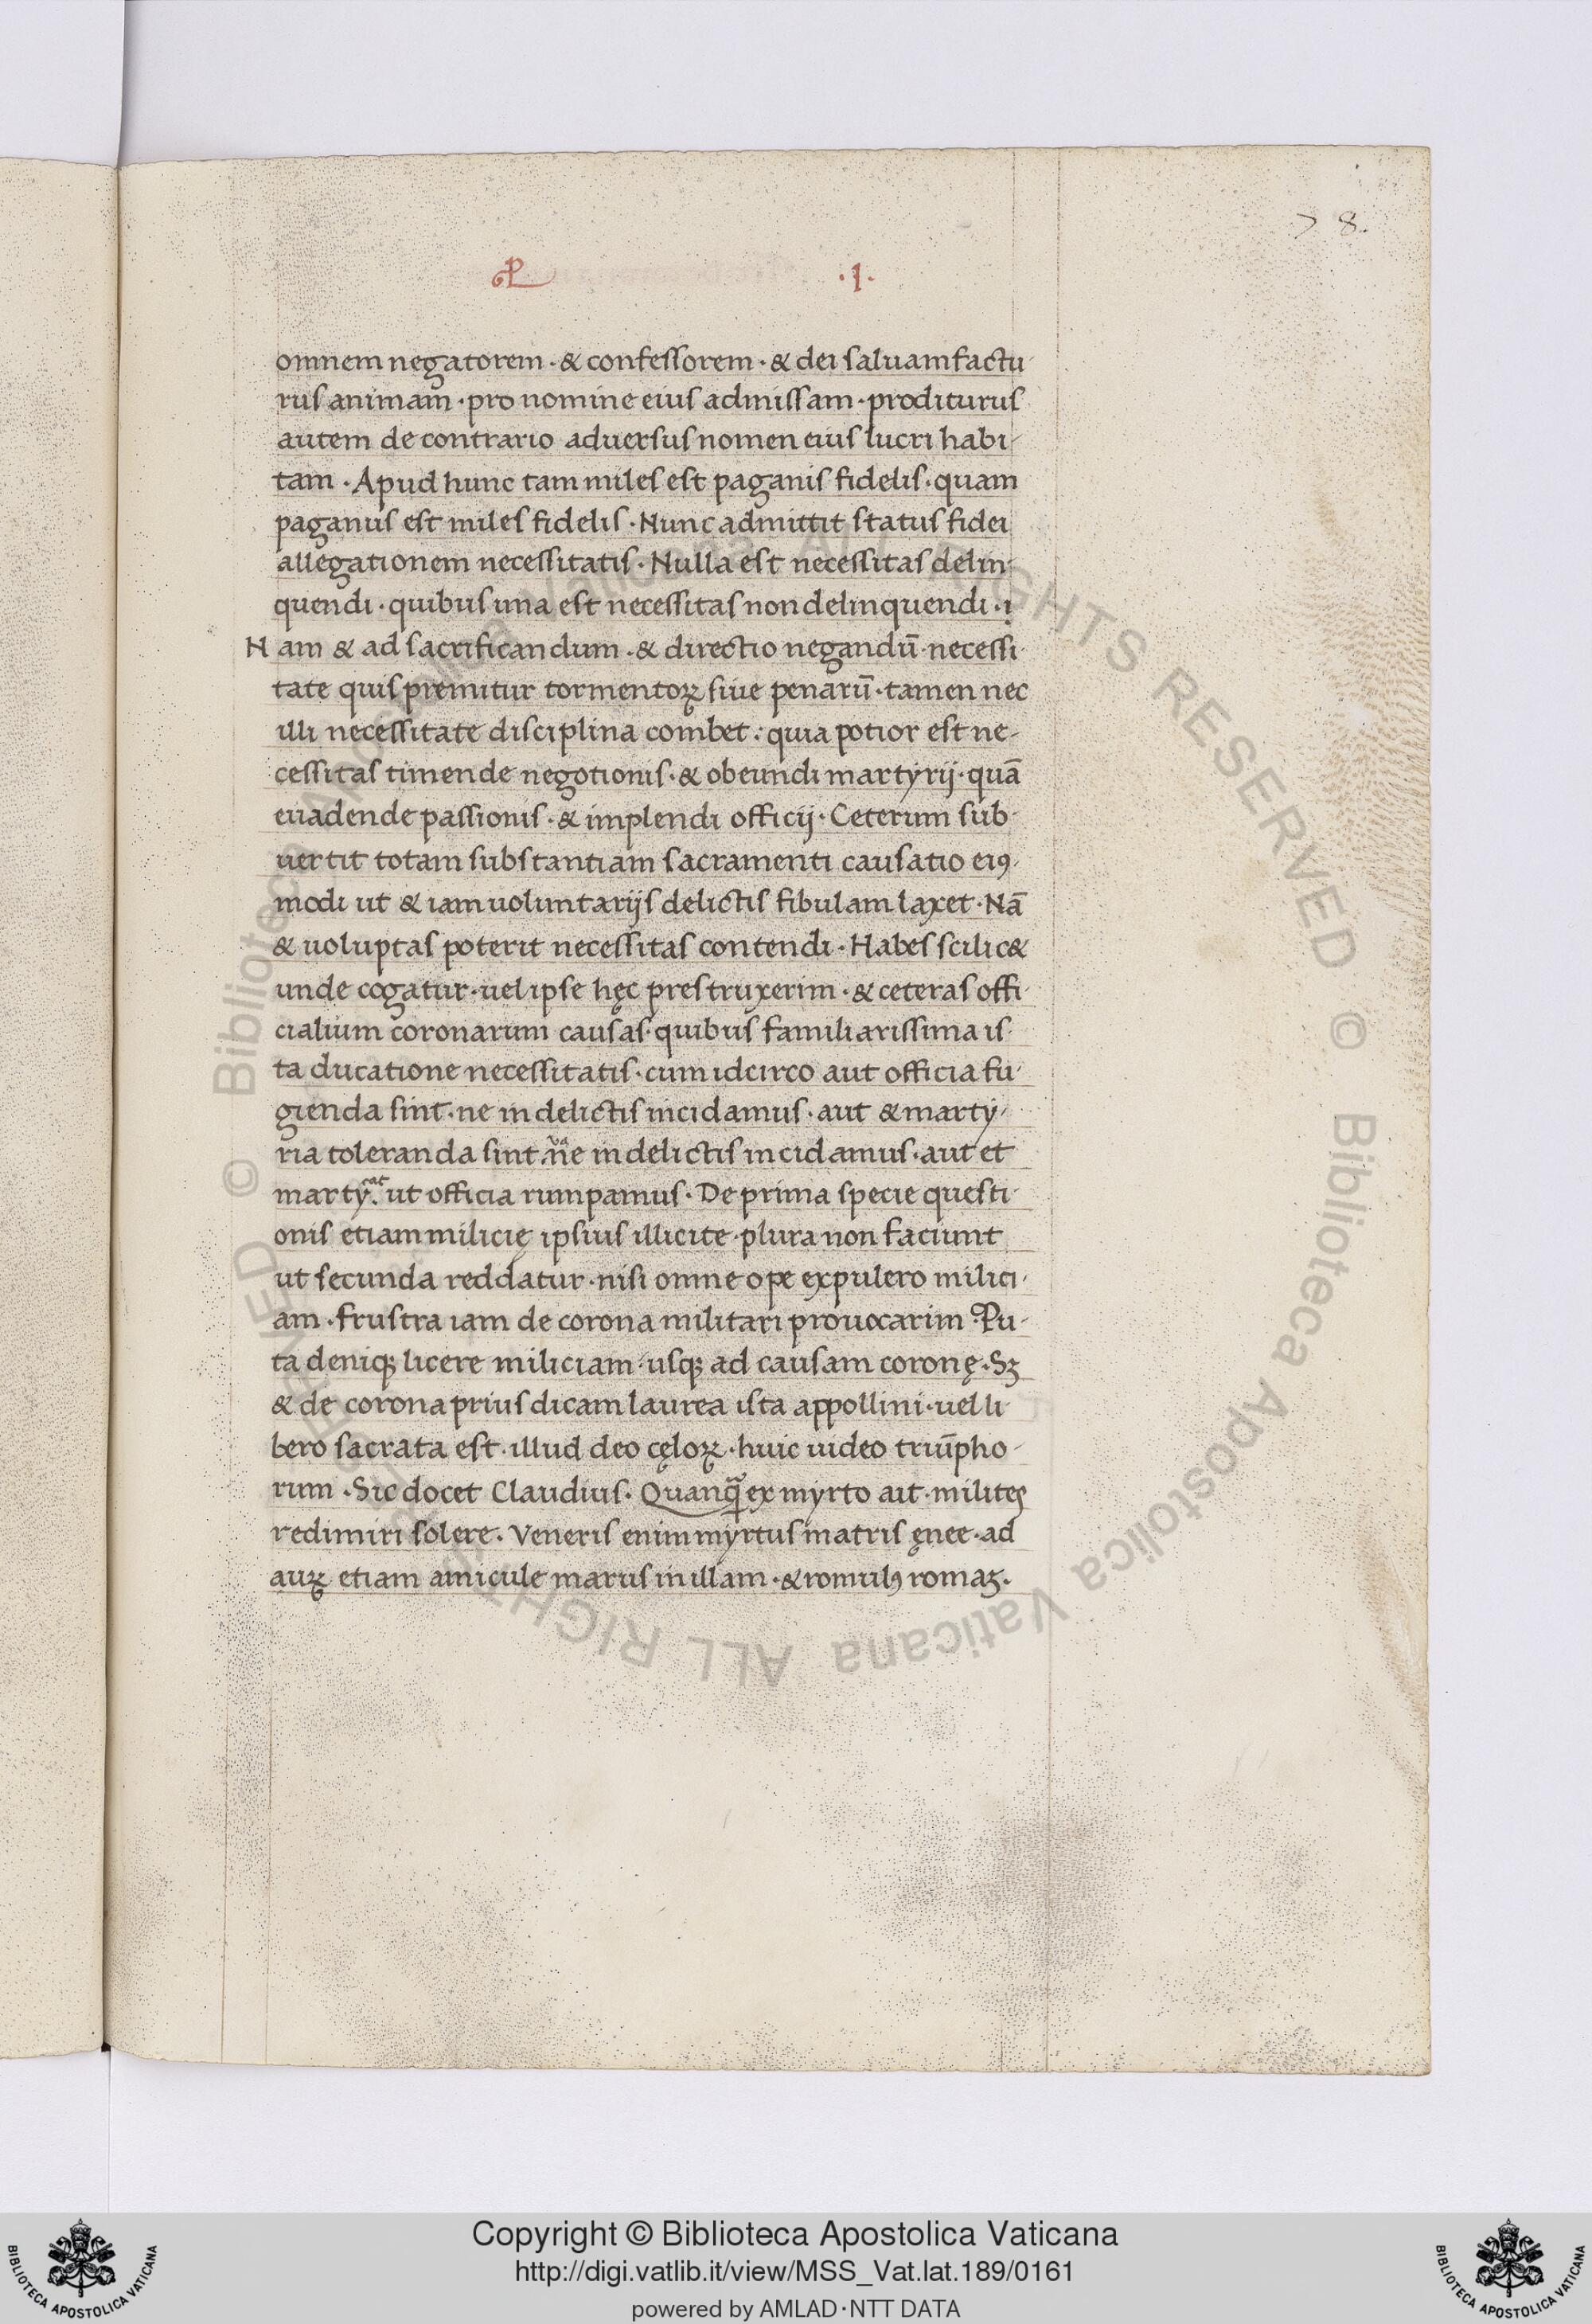 78.
.I.
omnem negatorem · & confessorem · & dei saluam factu
rus animam · pro nomine eius admissam · proditurus
autem de contrario aduersus nomen eius lucri habi
tam · Apud hunc tam miles est paganis fidelis · quam
paganus est miles fidelis · Nunc admittit status fidei
allegationem necessitatis · Nulla est necessitas delin
quendi · quibus una est necessitas non delinquendi ·
Nam & ad sacrificandum · & directio negandū · necessi
tate quis premitur tormentoꝝ siue penarū · tamen nec
illi necessitate disciplina combet : quia potior est ne-
cessitas timende negotionis · & obeundi martyrij · quā
euadende passionis · & implendi officij · Ceterum sub
uertit totam substantiam sacramenti causatio eiꝰ
modi ut & iam uoluntarijs delictis fibulam laxet · Nā
& uoluptas poterit necessitas contendi · Habes scilic&
unde cogatur · uel ipse hęc prestruxerim · & ceteras offi
cialium coronarum causas · quibus familiarissima is
ta ducatione necessitatis · cum idcirco aut officia fu
gienda sint · ne in delictis incidamus · aut & marty
ria toleranda sint ne in delictis incidamus · aut et
marty. ut officia rumpamus · De prima specie questi
onis etiam milicię ipsius illicite · plura non faciunt
ut secunda reddatur · nisi omne ope expulero milici
am · frustra iam de corona militari prouocarim · Pu-
ta deniqꝫ licere miliciam · usqꝫ ad causam coronę · Sꝫ
& de corona prius dicam laurea ista appollini · uel li
bero sacrata est · illud deo cęloꝝ · huic uideo triūpho-
rum · Sic docet Claudius · Quanqꝫ ex myrto ait · milites
redimiri solere · Veneris enim myrtus matris ęnee · ad
auꝝ etiam amicule marus in illam · & romulꝰ romaꝫ.
© Biblioteca Apostolica Vaticana ALL RIGHTS RESERVED © Biblioteca Apostolica Vaticana ALL RIGHTS RESERVED
Copyright © Biblioteca Apostolica Vaticana
http://digi.vatlib.it/view/MSS_Vat.lat.189/0161
powered by AMLAD·NTT DATA
BIBLIOTECA APOSTOLICA VATICANA
BIBLIOTECA APOSTOLICA VATICANA